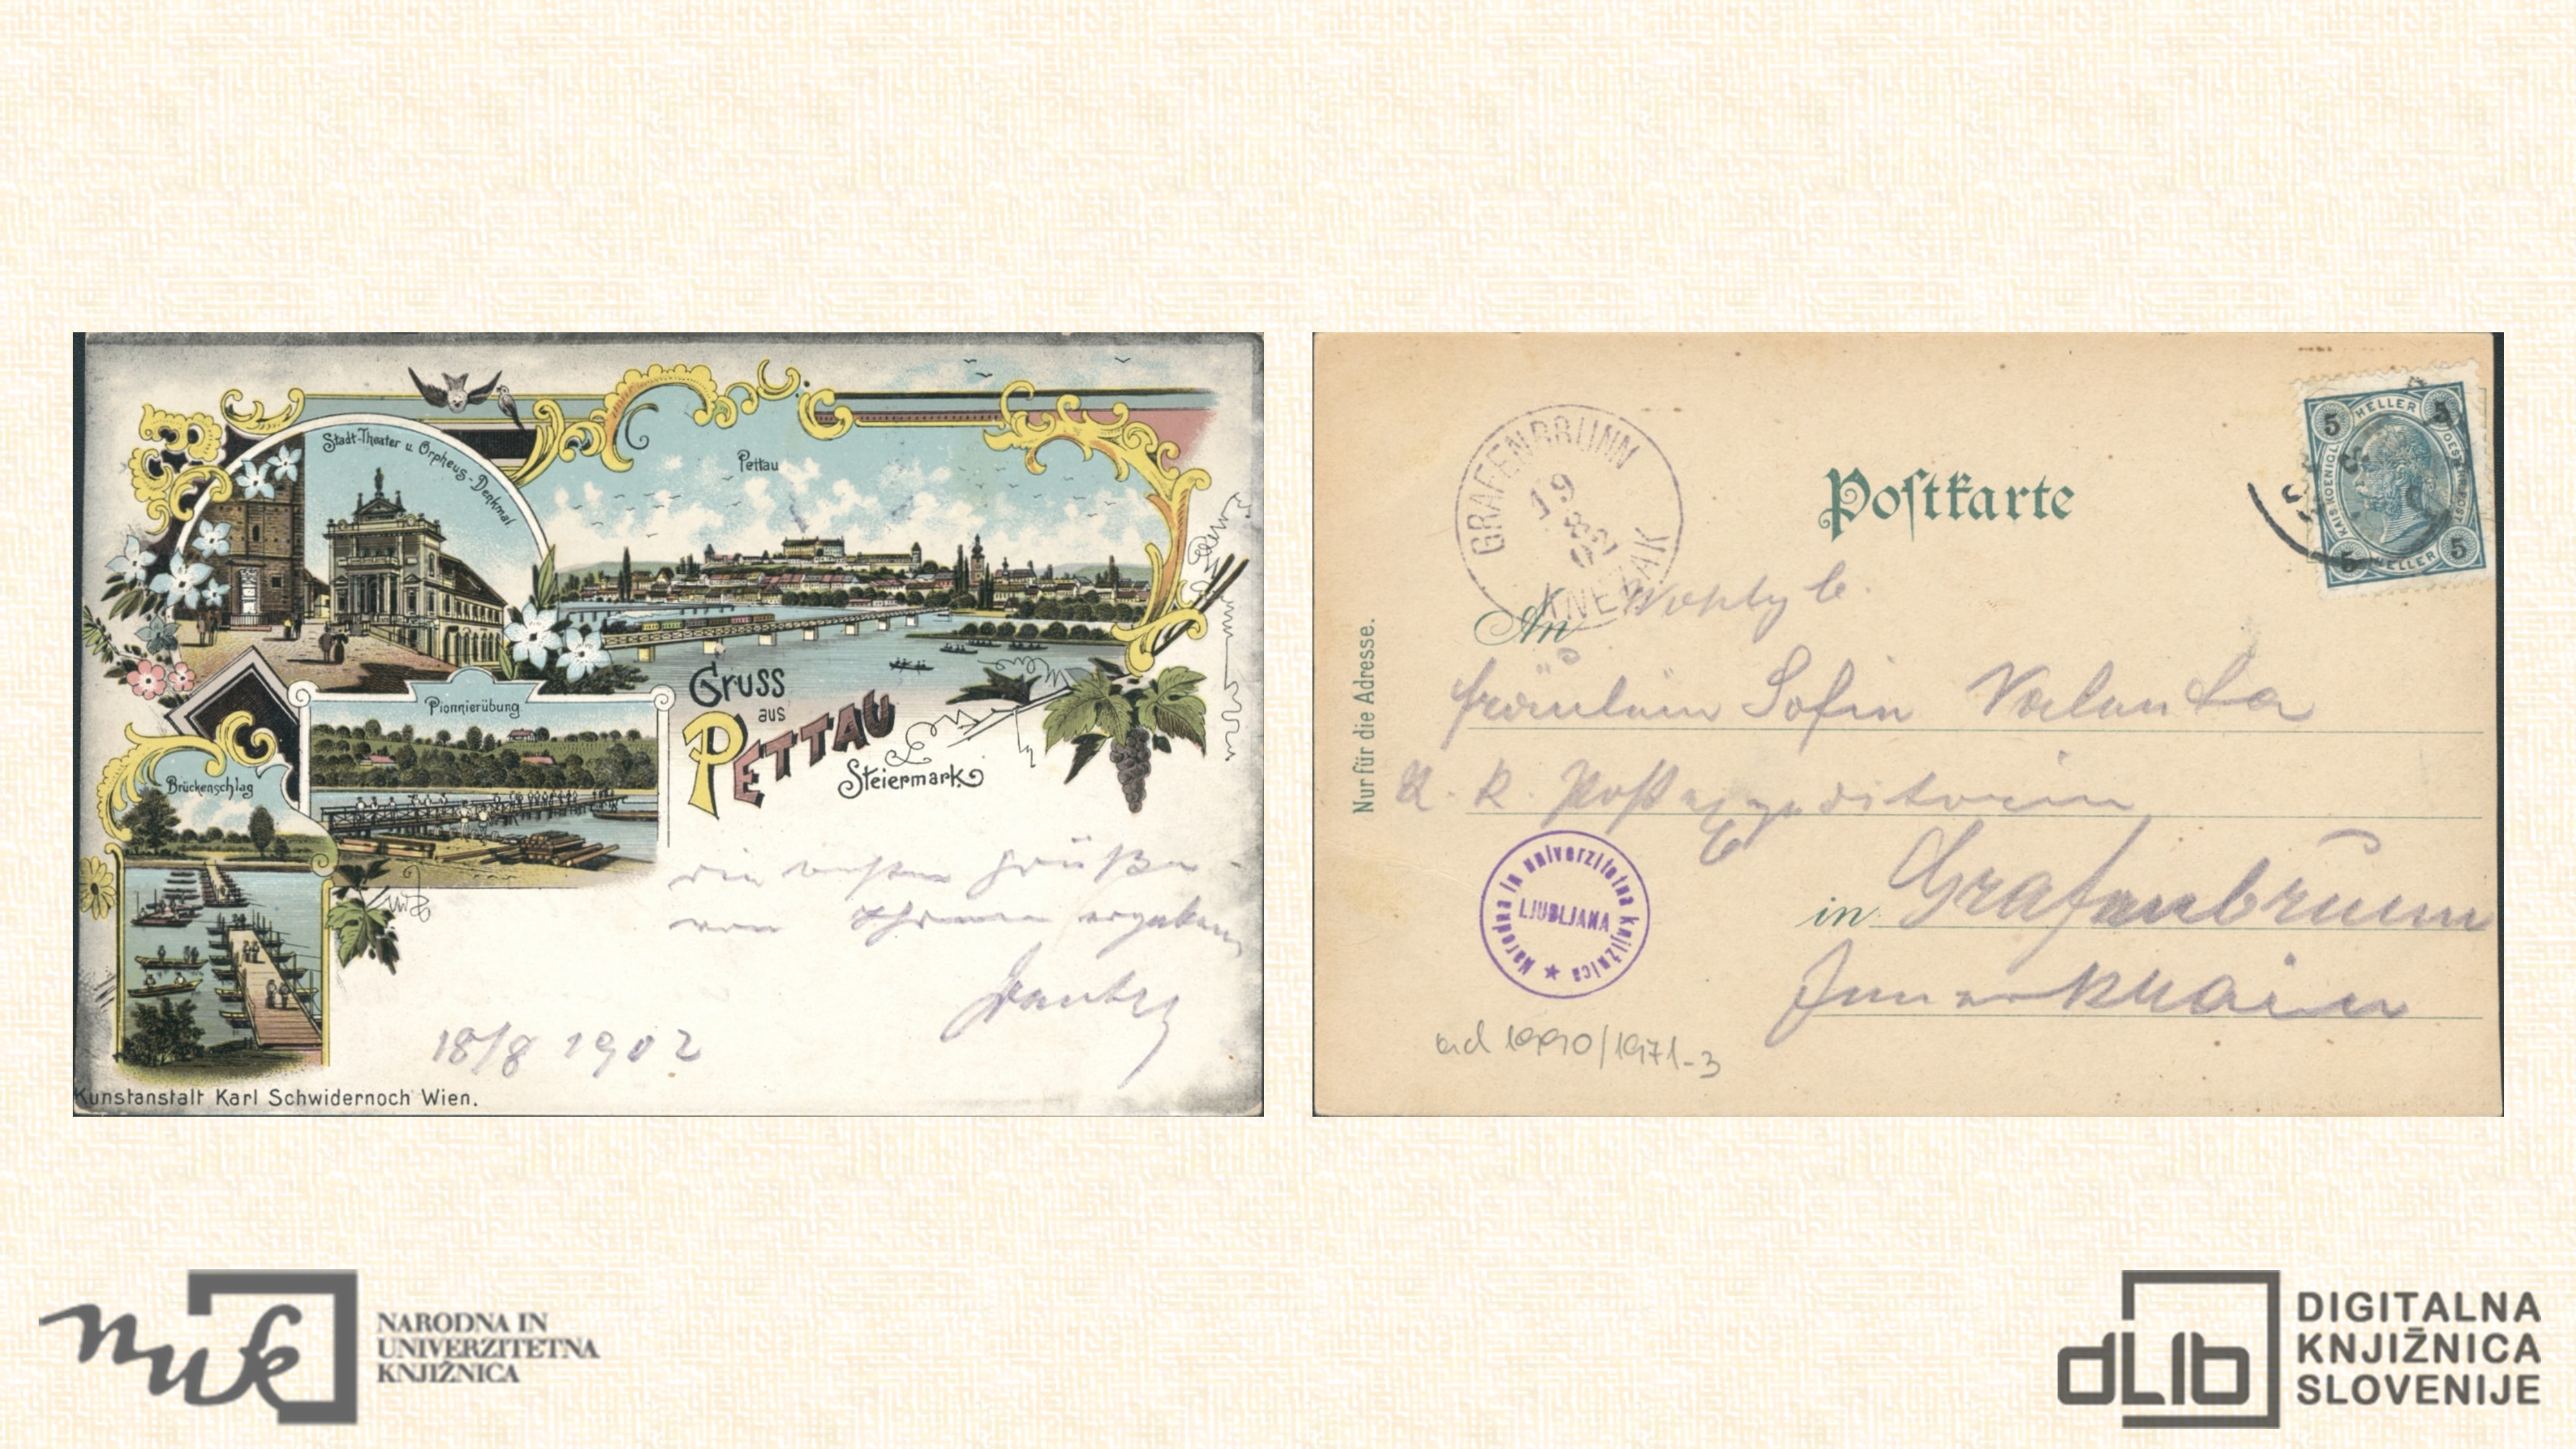 Stadt-Theater u. Orpheus-Denkmal.
Pettau
Gruss
aus
PETTAU
Steiermark
Pionnierübung
Brückenschlag
die besten Grüße
von Ihrem ergebenen
18/8 1902
Kunstanstalt Karl Schwidernoch Wien.
Postkarte
Nur für die Adresse.
GRAFENBRUNN
19
8
KNEŽAK
5 HELLER 5
KAIS. KOENIGL.
OEST. POST
5 HELLER 5
An Wohlg b.
Fräulein Sofie Valenta
K. K. Postexpeditorin
in Grafenbrunn
Innerkrain
Narodna in univerzitetna knjižnica
LJUBLJANA
ad 1990/1971-3
nuk
NARODNA IN
UNIVERZITETNA
KNJIŽNICA
dLib
DIGITALNA
KNJIŽNICA
SLOVENIJE